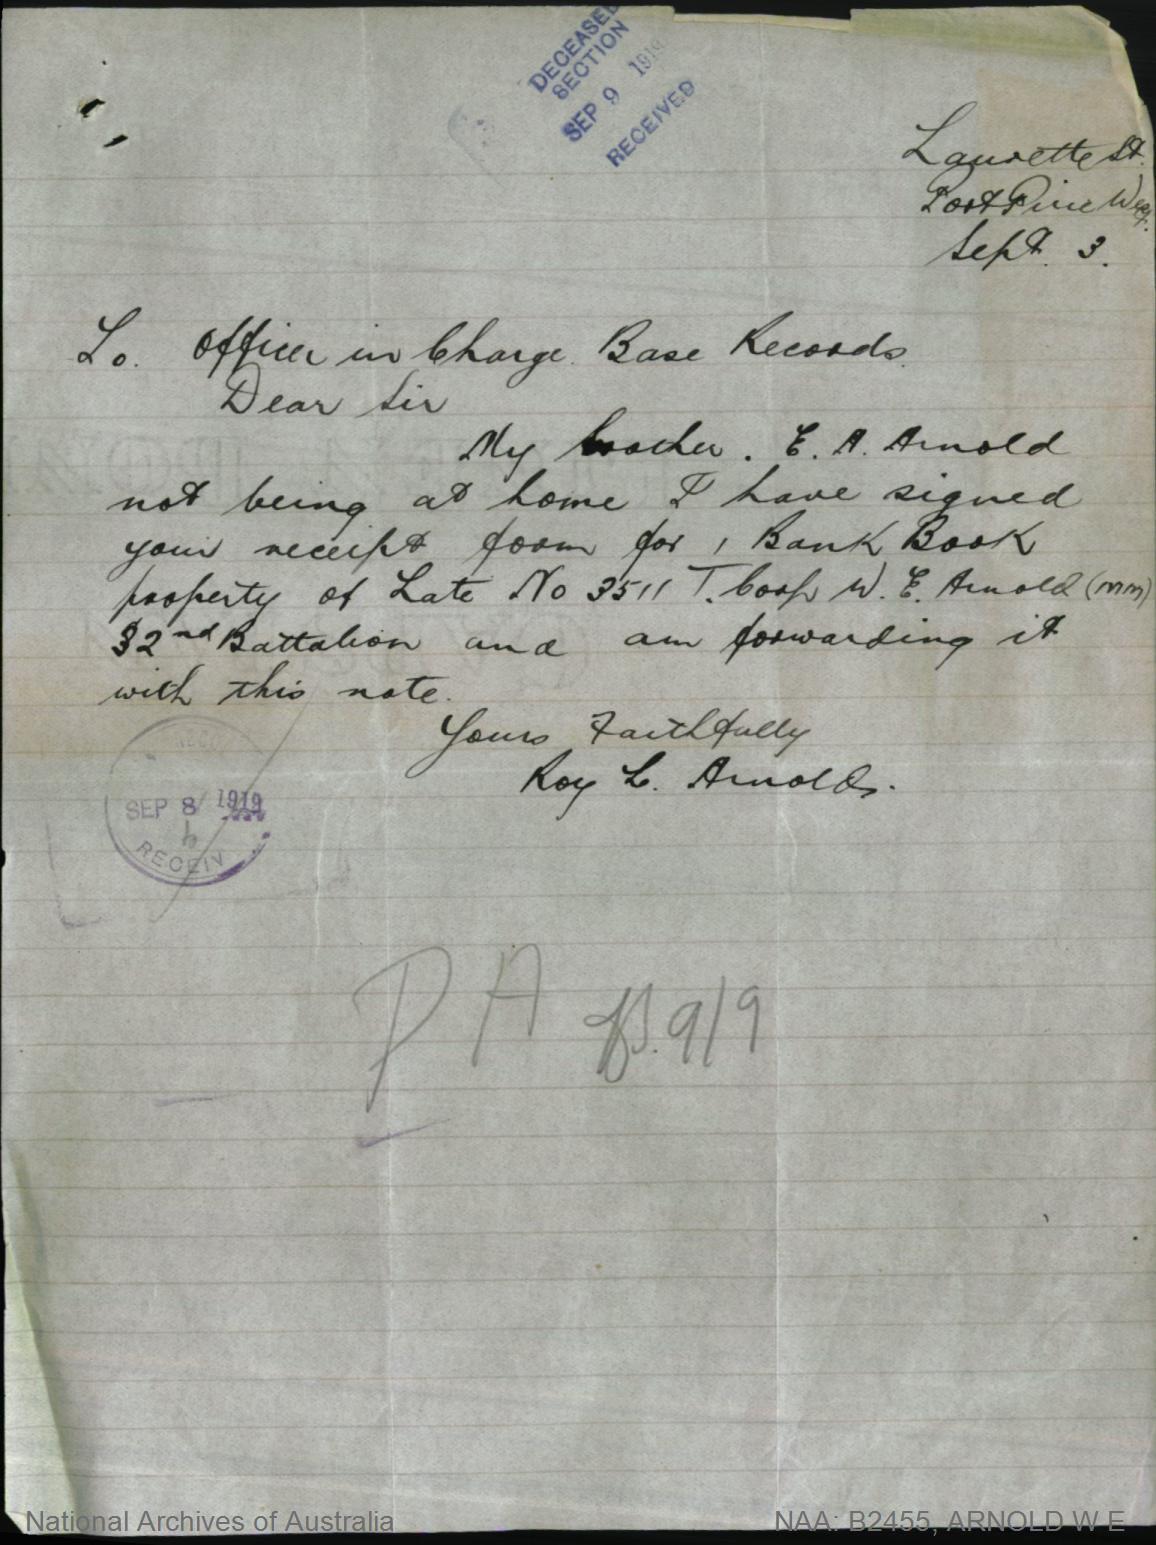 DECEASED
SECTION
SEP 9 1919
RECEIVED
Laurette St.
Port Pirie West.
Sept. 3.
To. Officer in Charge. Base Records.
Dear Sir
My brother. E. A. Arnold
not being at home I have signed
your receipt form for 1 Bank Book
property of Late No 3511 T. Corp W. E. Arnold (MM)
32nd Battalion and am forwarding it
with this note.
Yours Faithfully
Roy L. Arnold.
SEP 8 1919
RECEIV
P A 9/9
National Archives of Australia
NAA: B2455, ARNOLD W E